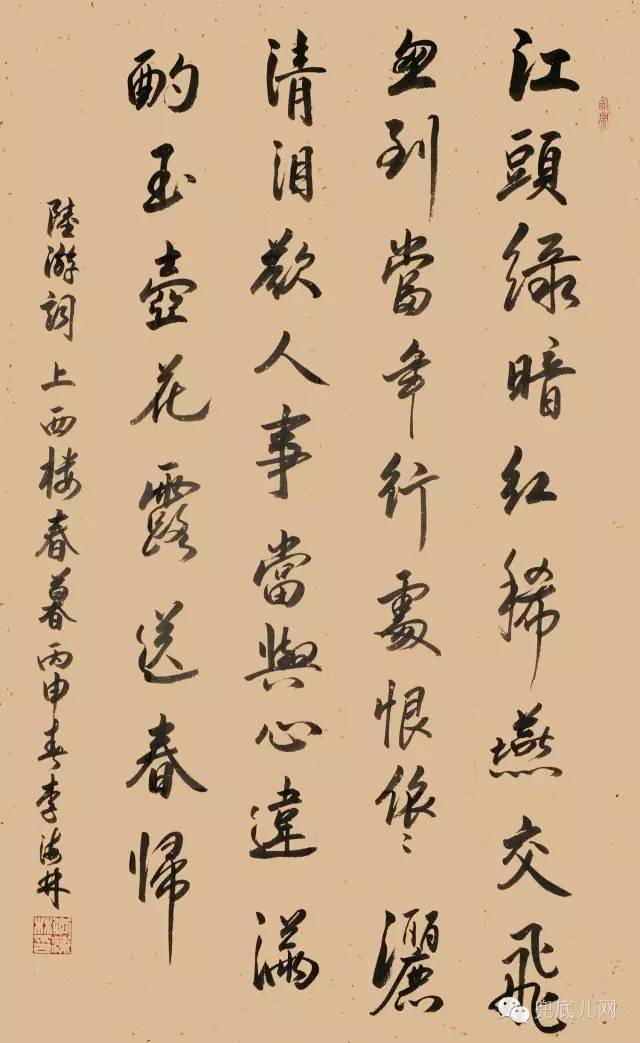 江頭緑暗紅稀燕交飛
忽到當年行處恨依〻灑
清泪歎人事當與心違滿
酌玉壺花露送春歸
陸游詞上西楼春暮丙申春李海林
兜底儿网